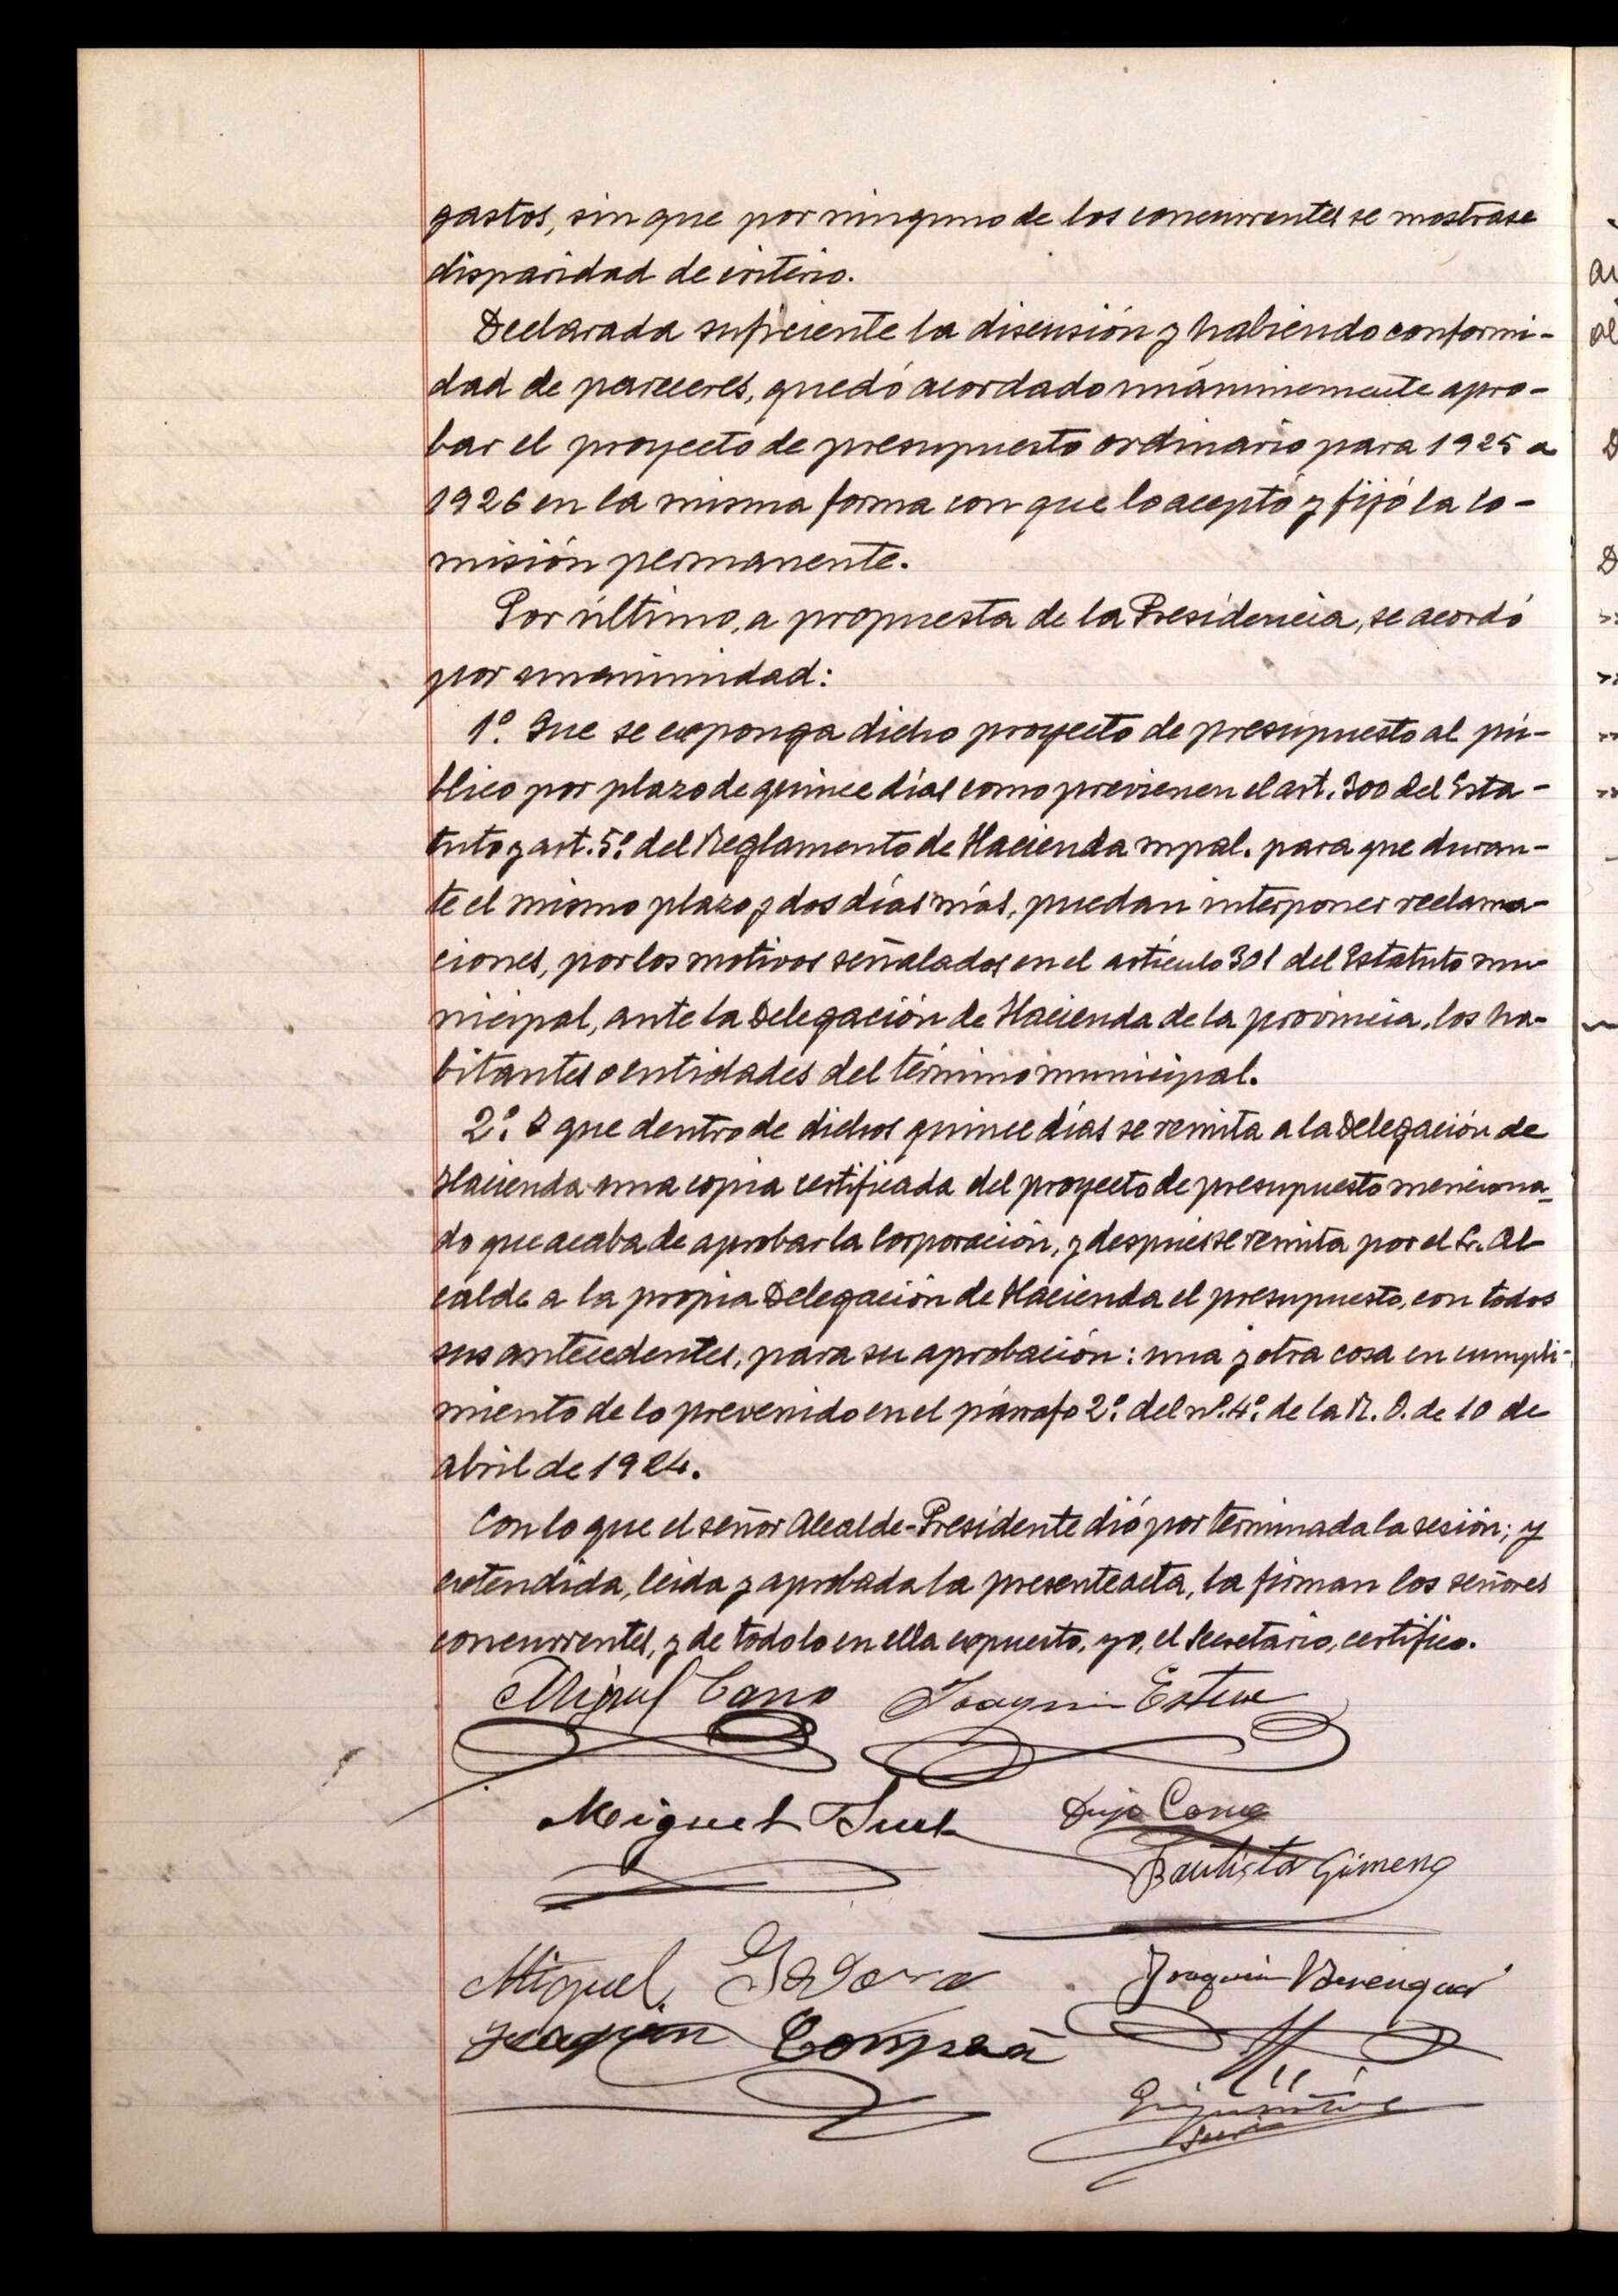 gastos, sin que por ninguno de los concurrentes se mostrase
disparidad de criterio.
Declarada suficiente la discusión y habiendo conformi-
dad de pareceres, quedó acordado unánimemente apro-
bar el proyecto de presupuesto ordinario para 1925 a
1926 en la misma forma con que lo aceptó y fijó la Co-
misión permanente.
Por último, a propuesta de la Presidencia, se acordó
por unanimidad:
1º. Que se exponga dicho proyecto de presupuesto al pú-
blico por plazo de quince días como previenen el art. 300 del Esta-
tuto y art. 5º. del Reglamento de Hacienda mpal. para que duran-
te el mismo plazo y dos días más, puedan interponer reclama-
ciones, por los motivos señalados en el artículo 301 del Estatuto mu-
nicipal, ante la Delegación de Hacienda de la provincia, los ha-
bitantes o entidades del término municipal.
2º. Y que dentro de dichos quince días se remita a la Delegación de
Hacienda una copia certificada del proyecto de presupuesto menciona-
do que acaba de aprobar la Corporación, y después se remita por el Sr. Al-
calde a la propia Delegación de Hacienda el presupuesto, con todos
sus antecedentes, para su aprobación: una y otra cosa en cumpli-
miento de lo prevenido en el párrafo 2º. del nº. 4º. de la R. O. de 10 de
abril de 1924.
Con lo que el señor Alcalde-Presidente dió por terminada la sesión; y
extendida, leída y aprobada la presente acta, la firman los señores
concurrentes, y de todo lo en ella expuesto, yo, el Secretario, certifico.
Miguel Cano Joaquin Esteve
Miguel
Bautista Gimeno
Miguel Joaquin Berenguer
Joaquin